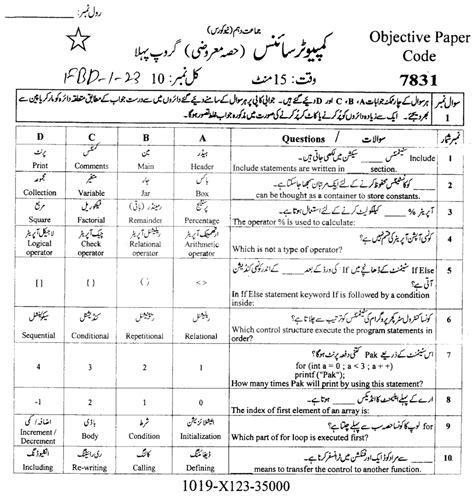 رول نمبر:
جماعت دہم (نیو کورس)
کمپیوٹر سائنس (حصہ معروضی) گروپ پہلا
Objective Paper
Code
FBD-1-23
وقت: 15 منٹ کل نمبر: 10
7831
سوال نمبر 1
ہر سوال کے چار ممکنہ جوابات A، B، C اور D دیئے گئے ہیں۔ جوابی کاپی پر ہر سوال کے سامنے دیئے گئے دائروں میں سے درست جواب کے مطابق متعلقہ دائرہ کو مارکر یا پین سے
بھر دیجئے۔ ایک سے زیادہ دائروں کو پُر کرنے یا کاٹ کر پُر کرنے کی صورت میں مذکورہ جواب غلط تصور ہوگا۔
D C B A Questions / سوالات نمبر شمار
پرنٹ کمنٹس مین ہیڈر Include سٹیٹمنٹس ____ سیکشن میں لکھی جاتی ہیں۔ 1
Print Comments Main Header Include statements are written in ______ section.
مجموعہ متغیر جار باکس ____ کو کانسٹنٹس محفوظ کرنے کے لئے ایک مرتبان سمجھا جا سکتا ہے۔ 2
Collection Variable Jar Box ______ can be thought as a container to store constants.
مربع فیکٹوریل ریمینڈر (باقی) پرسنٹیج آپریٹر % ____ کیلکولیٹ کرنے کے لئے استعمال ہوتا ہے۔ 3
Square Factorial Remainder Percentage The operator % is used to calculate:
لاجیکل آپریٹر چیک آپریٹر ریلیشنل آپریٹر ارتھمیٹک آپریٹر کونسی آپریٹر کی قسم نہیں ہے؟ 4
Logical operator Check operator Relational operator Arithmetic operator Which is not a type of operator?
If Else سٹیٹمنٹ کے ڈھانچے میں If کی ورڈ کے بعد ____ کے اندر کونسی کنڈیشن آتی ہے؟ 5
[ ] { } ( ) < > In If Else statement keyword If is followed by a condition
inside:
سیکوئنشل کنڈیشنل ریپیٹیشنل ریلیشنل کونسا کنٹرول سٹرکچر پروگرام کی سٹیٹمنٹس کو ترتیب سے چلاتا ہے؟ 6
Sequential Conditional Repetitional Relational Which control structure execute the program statements in
order?
اس سٹیٹمنٹ کے ذریعے Pak کتنی دفعہ پرنٹ ہوگا؟ 7
4 3 2 1 for (int a = 0 ; a < 3 ; a + +)
printf ("Pak");
How many times Pak will print by using this statement?
ارے کے پہلے ایلیمنٹ کا انڈیکس ____ ہوتا ہے۔ 8
-1 2 1 0 The index of first element of an array is:
اضافہ / کمی باڈی شرط انیشلائزیشن for لوپ کا کونسا حصہ سب سے پہلے چلتا ہے؟ 9
Increment / Decrement Body Condition Initialization Which part of for loop is executed first?
انکلوڈنگ ری رائیٹنگ کالنگ ڈیفائننگ ____ سے مراد کوڈ ایک اور فنکشن میں ٹرانسفر کرنا ہے۔ 10
Including Re-writing Calling Defining ______ means to transfer the control to another function.
1019-X123-35000